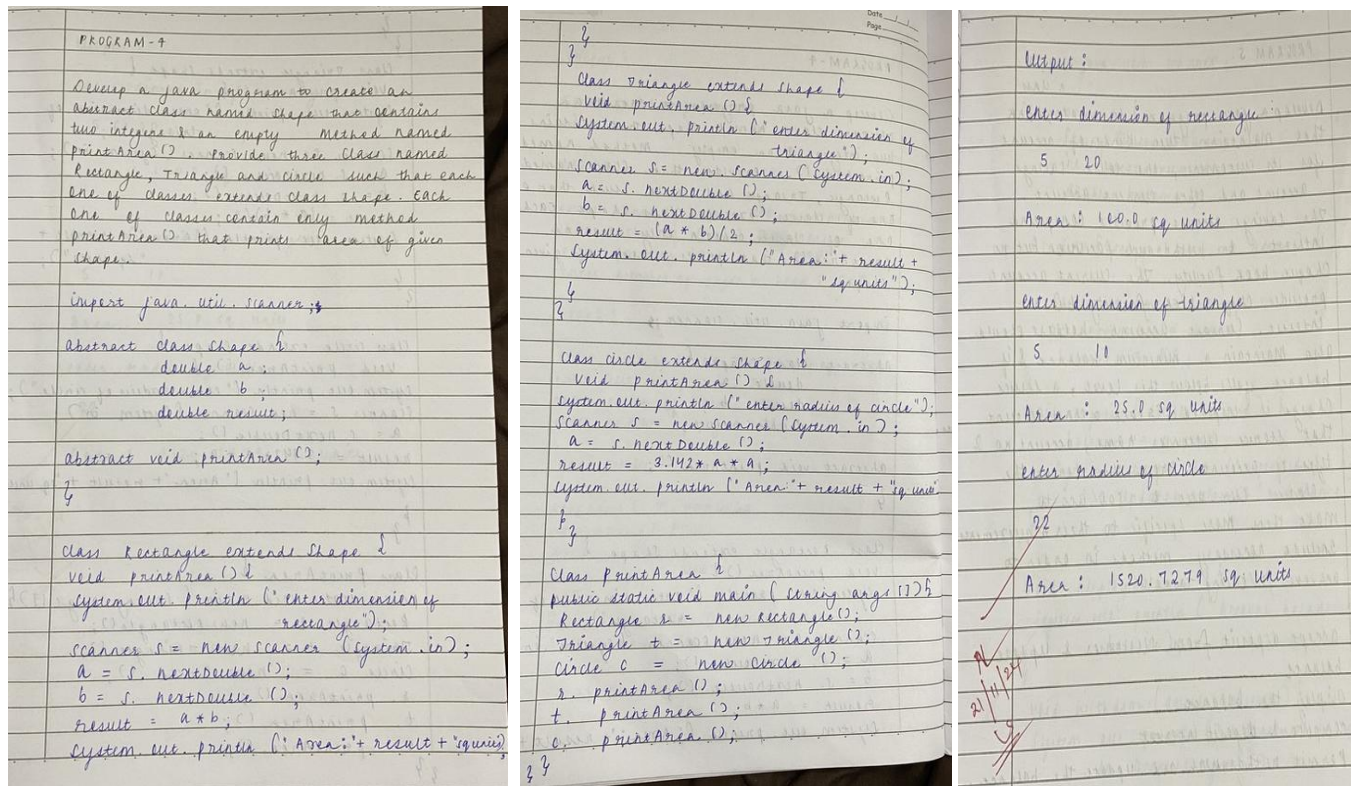 PROGRAM-4
Develop a java program to create an
abstract class named shape that contains
two integers & an empty method named
printArea(). Provide three class named
Rectangle, Triangle and circle such that each
one of classes extends class shape. Each
one of classes contain only method
printArea() that prints area of given
shape.
import java. util. scanner;
abstract class shape {
double a ;
double b ;
double result;
abstract void printArea ();
}
class Rectangle extends Shape {
void printArea () {
system.out. println (" enter dimension of
rectangle");
scanner s = new scanner (system.in);
a = s. nextDouble ();
b = s. nextDouble ();
result = a*b;
system. out. println (" Area:"+ result + "sq units)
Date
Page
}
}
class Triangle extends shape {
void printArea () {
system. out. println (" enter dimension of
triangle");
scanner s = new. scanner ( system. in);
a = s. nextDouble ();
b = s. nextDouble ();
result = (a * b)/2 ;
system. out. println ("Area:"+ result +
"sq units");
}
}
class circle extends shape {
void printArea () {
system.out. println (" enter radius of circle");
scanner s = new scanner (system. in);
a = s. nextDouble ();
result = 3.142* a * a ;
system.out. println (" Area:"+ result + "sq units"
}
}
class printArea {
public static void main ( string args []) {
Rectangle r = new Rectangle();
Triangle t = new Triangle ();
circle c = new circle ();
r. printArea ();
t. printArea ();
c. printArea ();
} }
Output :
enter dimension of rectangle
5 20
Area : 100.0 sq units
enter dimension of triangle
5 10
Area : 25.0 sq units
enter radius of circle
22
Area : 1520.7279 sq units
21/11/24